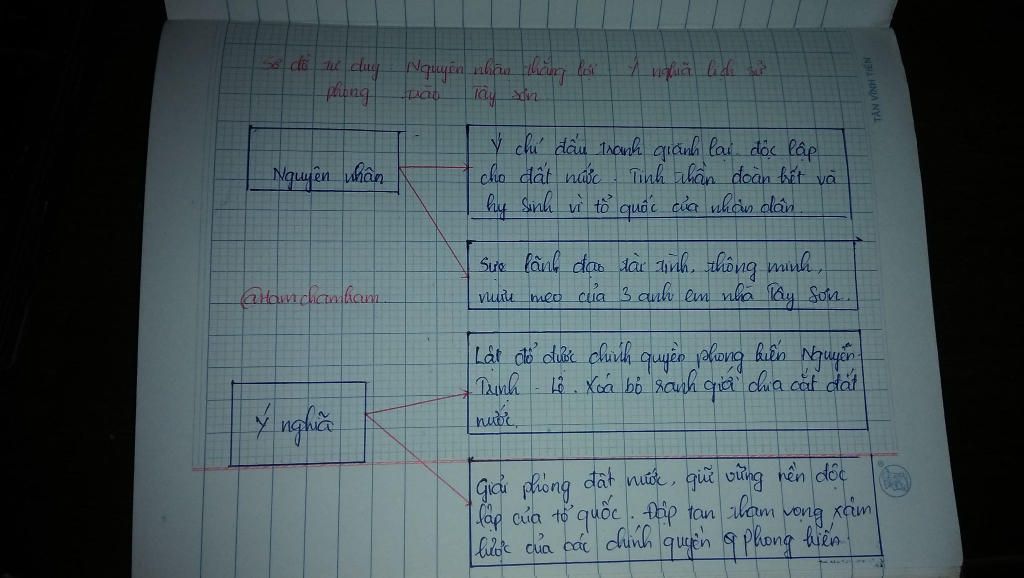 Sơ đồ tư duy Nguyên nhân thắng lợi Ý nghĩa lịch sử
phong trào Tây Sơn
Nguyên nhân
Ý chí đấu tranh giành lại độc lập
cho đất nước. Tinh thần đoàn kết và
hy sinh vì tổ quốc của nhân dân.
Sực lãnh đạo tài tình, thông minh,
mưu mẹo của 3 anh em nhà Tây Sơn.
@Hamchamham
Ý nghĩa
Lật đổ được chính quyền phong kiến Nguyễn-
Trịnh - Lê. Xoá bỏ ranh giới chia cắt đất
nước.
Giải phóng đất nước, giữ vững nền độc
lập của tổ quốc. Đập tan tham vọng xâm
lược của các chính quyền phong kiến
TÂN VĨNH TIẾN